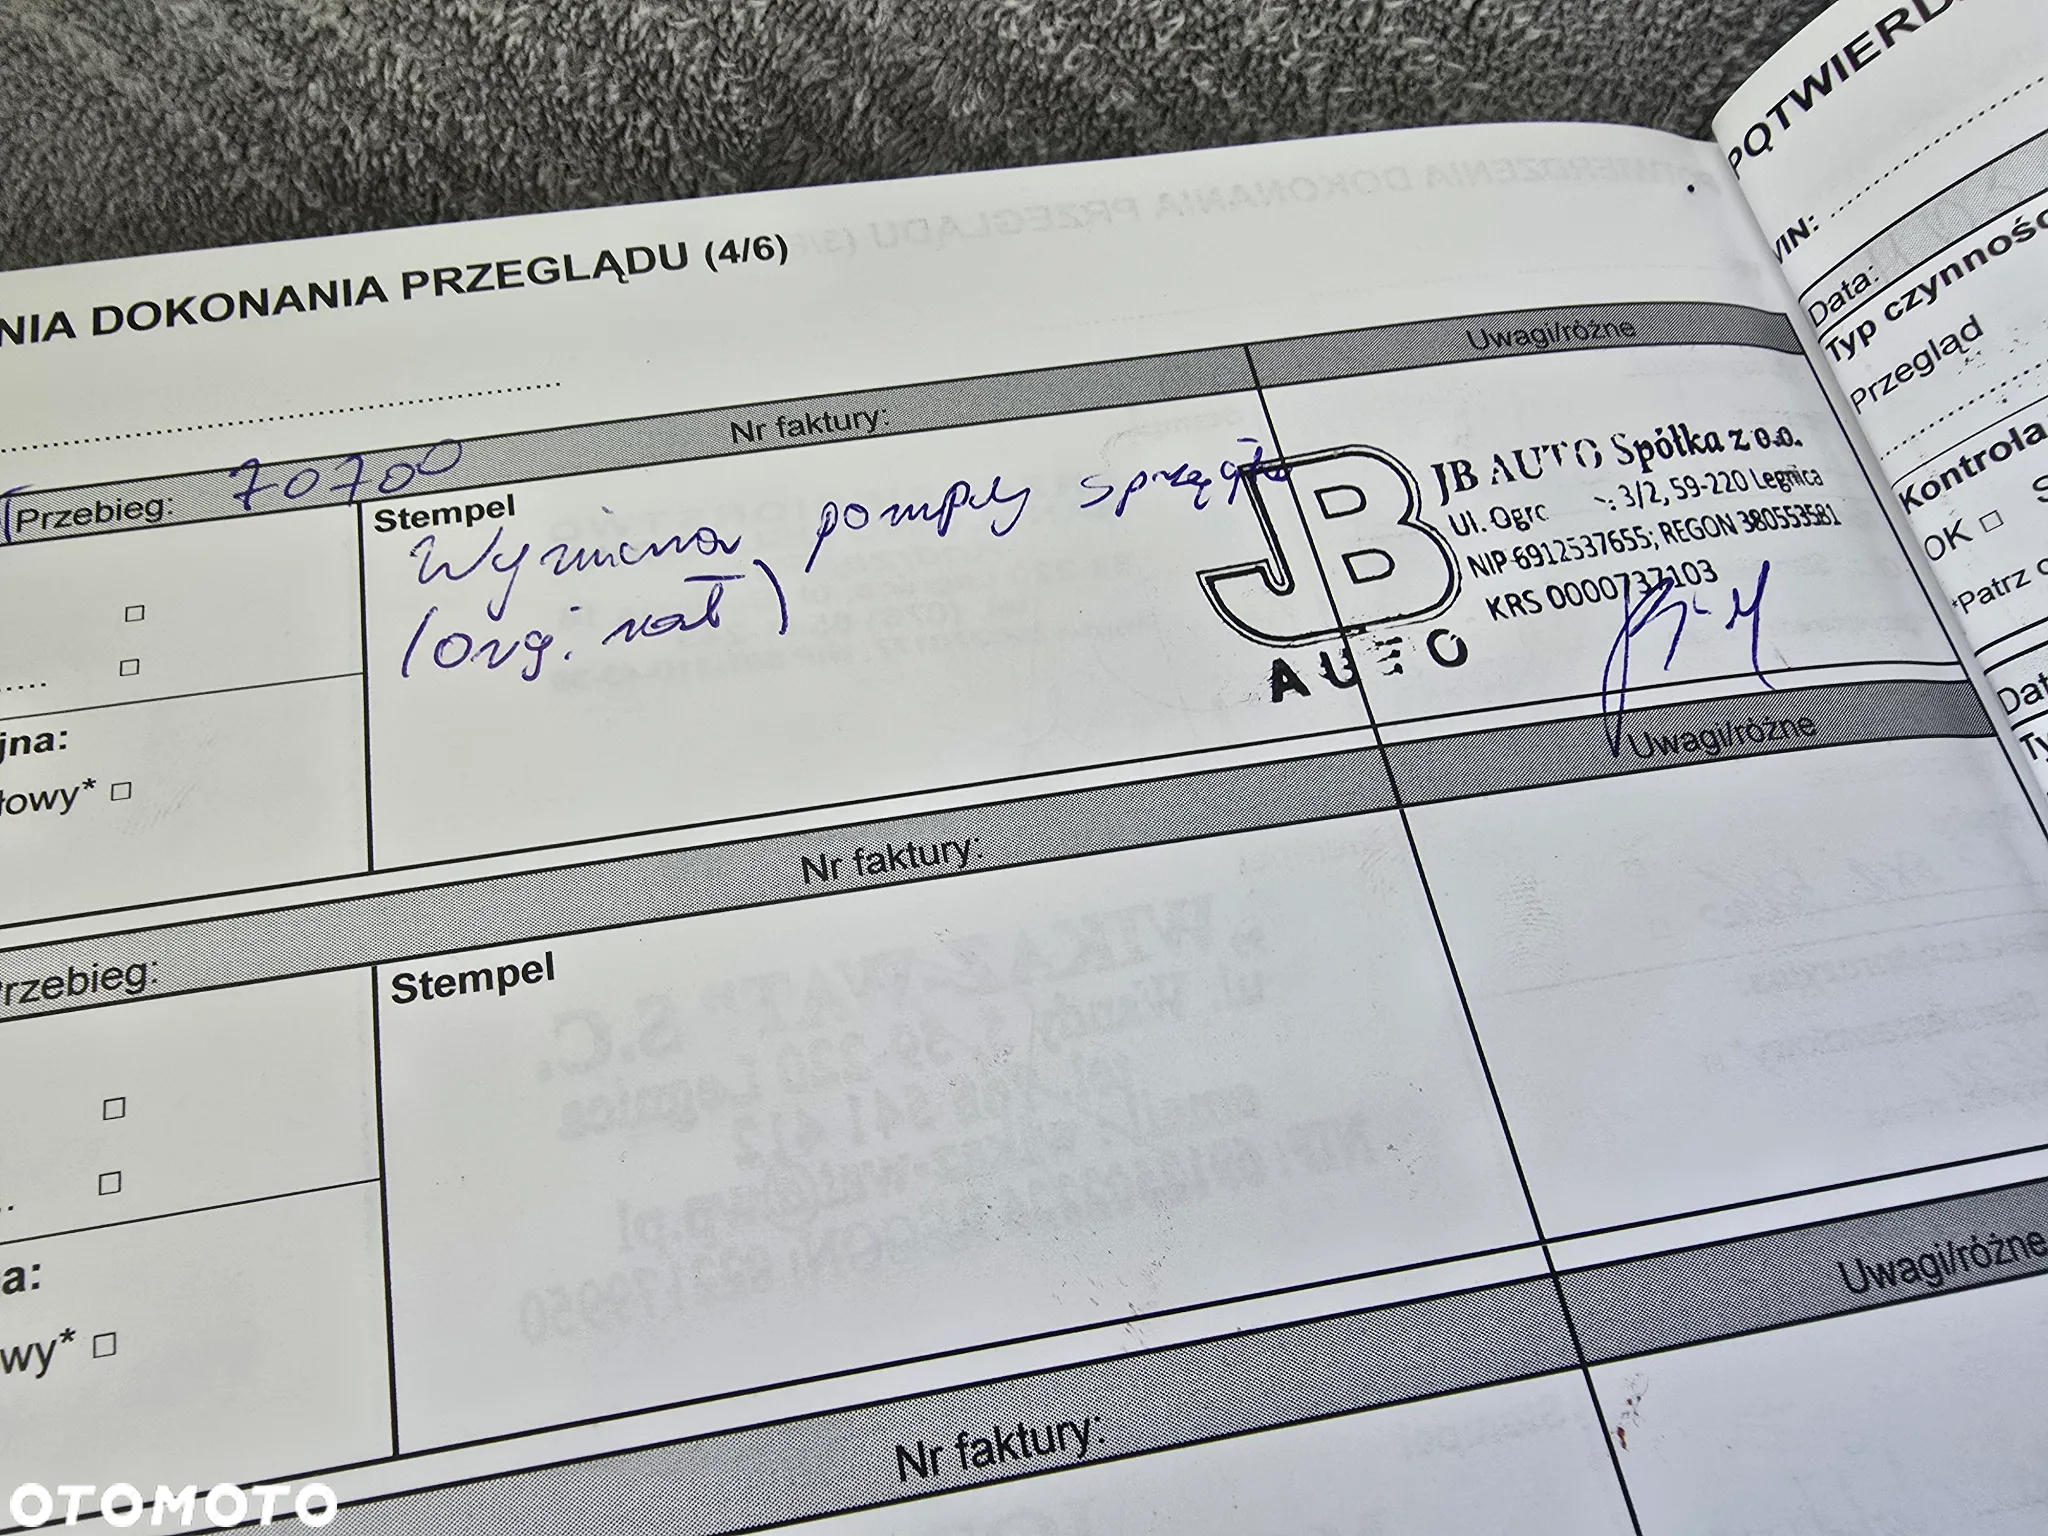 NIA DOKONANIA PRZEGLĄDU (4/6)
Przebieg: 70700
Nr faktury:
Uwagi/różne
Stempel
Wymiana pompy sprzęgła
(org.
JB AUTO Spółka z o.o.
3/2, 59-220 Legnica
NIP 6912537655; REGON 380553581
KRS 0000737103
JB
AUTO
jna:
łowy*
Nr faktury:
Uwagi/różne
rzebieg:
Stempel
a:
wy*
Nr faktury:
Uwagi/różne
POTWIERD
VIN:
Data:
Typ czynnośc
Przegląd
Kontrola
OK
*Patrz
Dat
Ty
OTOMOTO